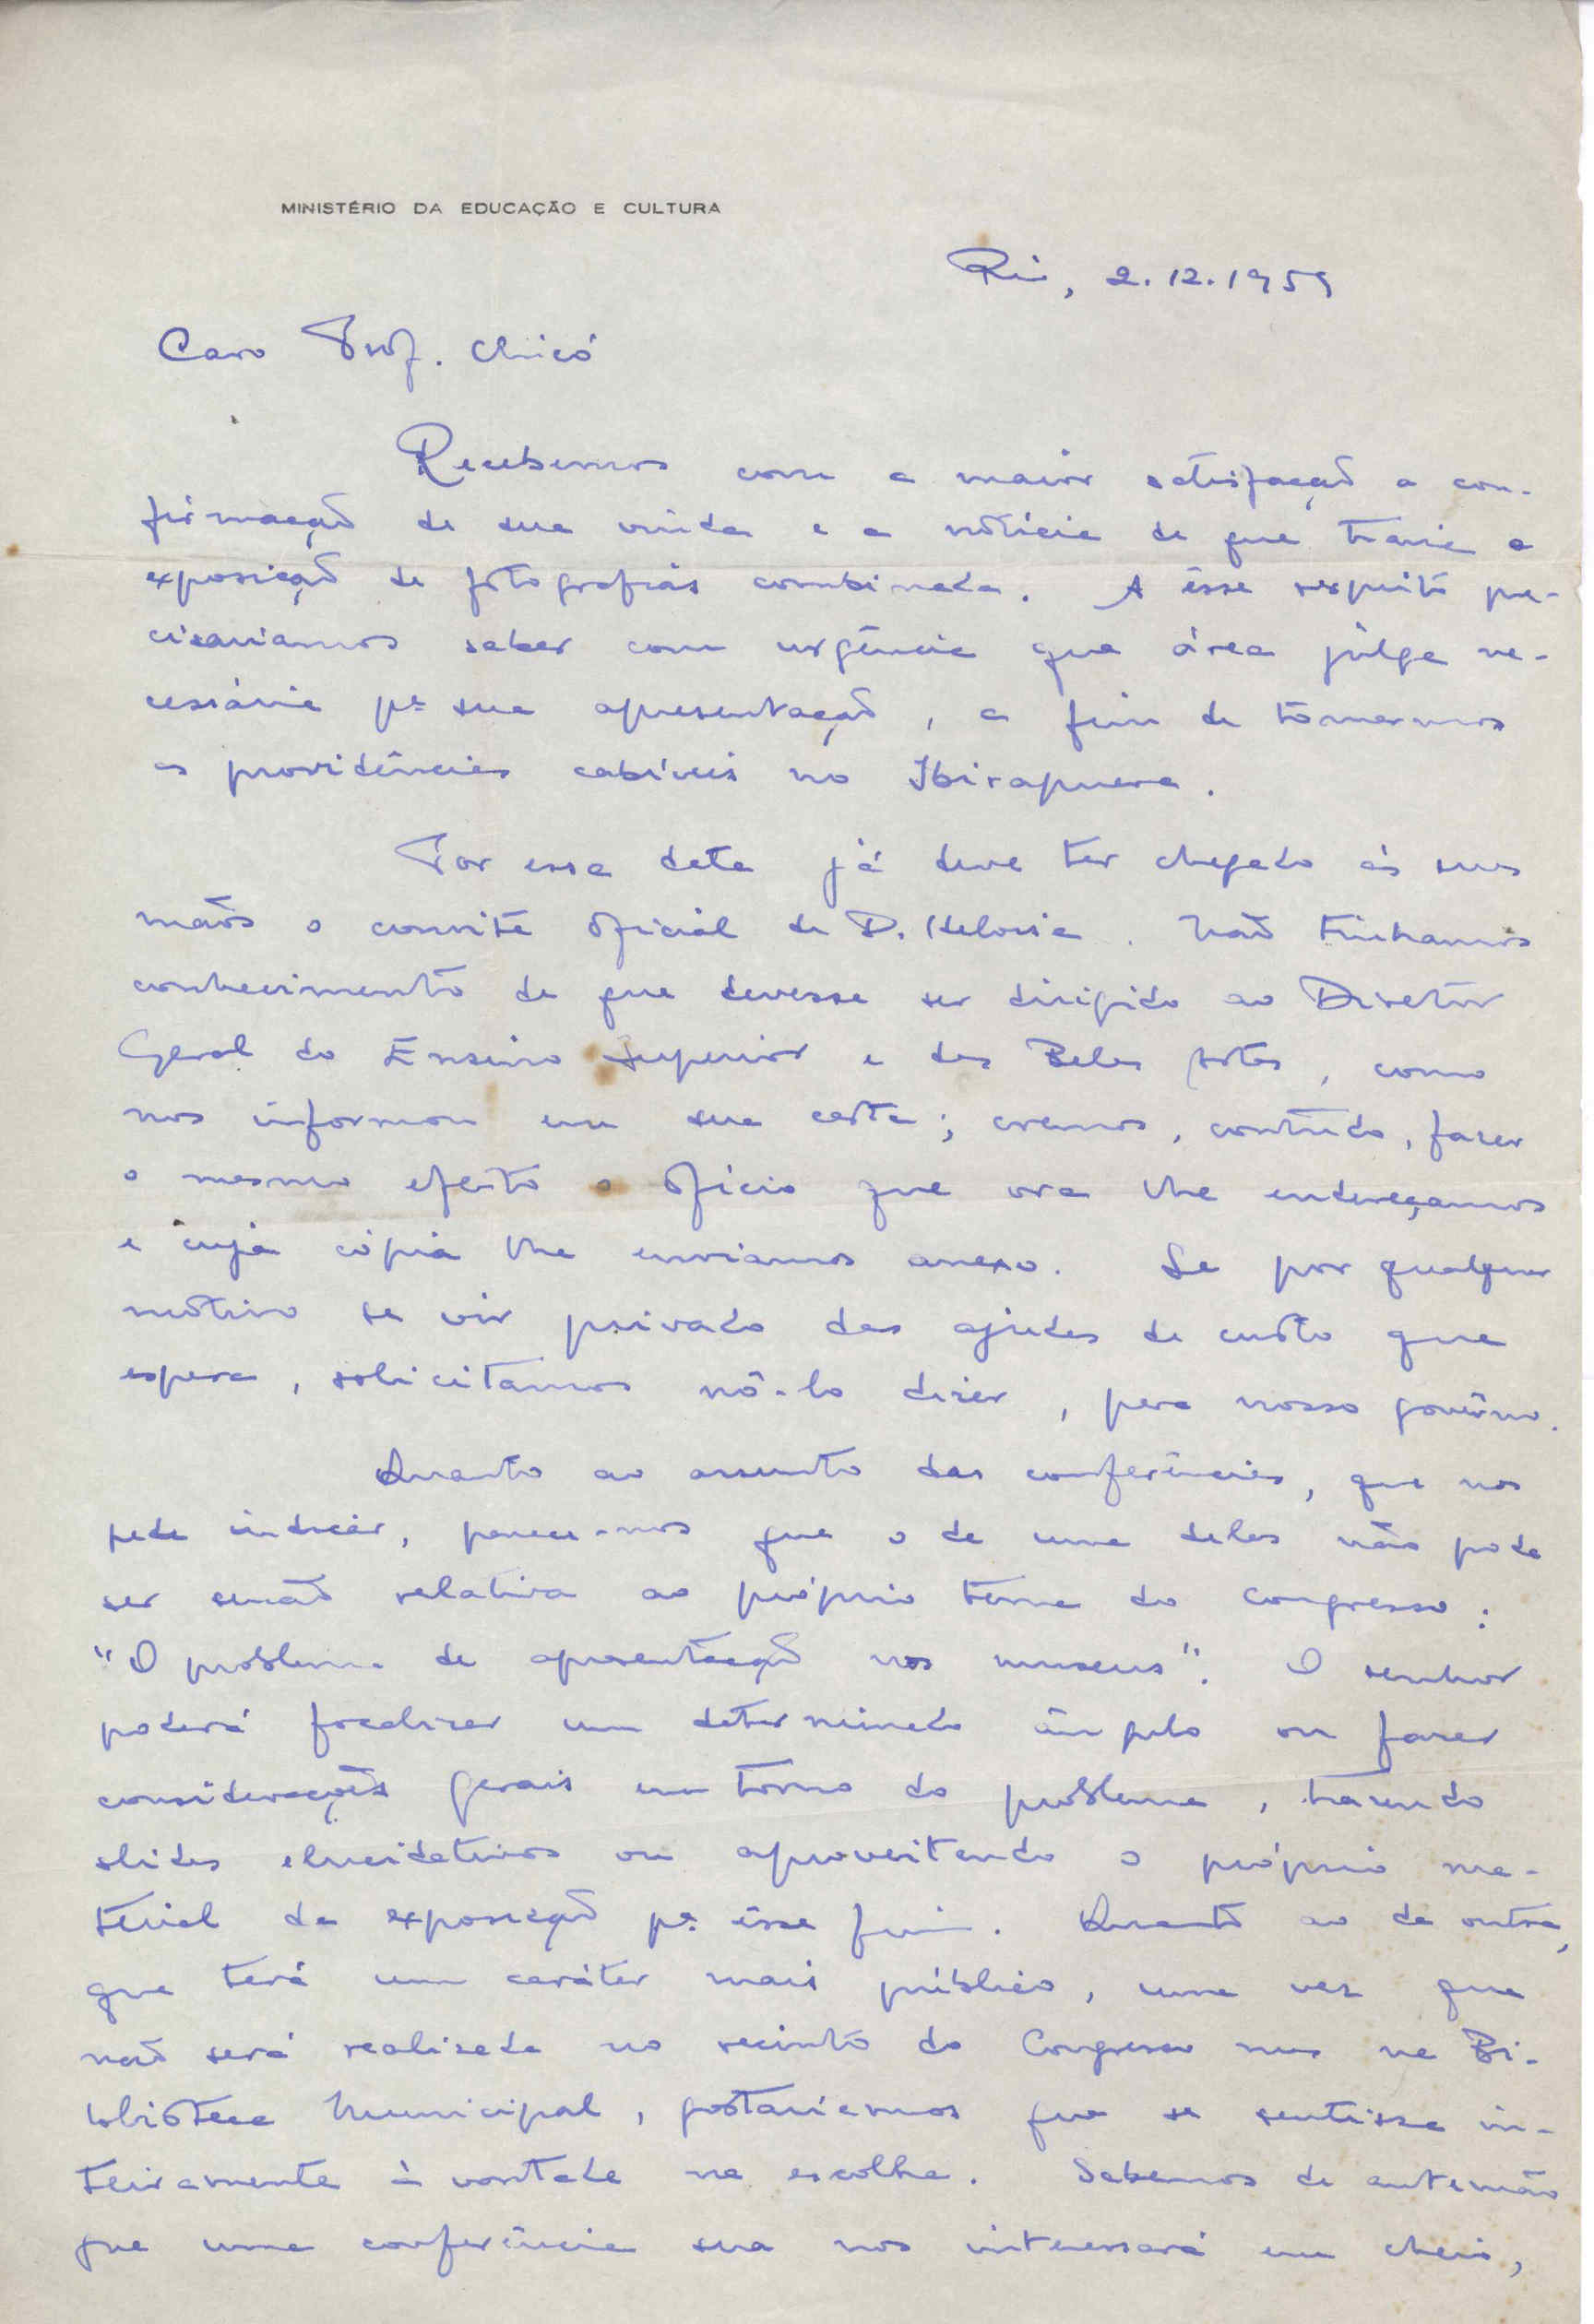 MINISTÉRIO DA EDUCAÇÃO E CULTURA
Rio, 2.12.1959
Caro Prof. Chicó
Recebemos com a maior satisfação a con-
firmação de sua vinda e a notícia de que traria a
exposição de fotografias combinada. A êsse respeito pre-
cisaríamos saber com urgência que área julga ne-
cessária pª sua apresentação, a fim de tomarmos
as providências cabíveis no Ibirapuera.
Por essa data já deve ter chegado às suas
mãos o convite oficial de D. Heloisa. Não tinhamos
conhecimento de que devesse ser dirigido ao Diretor
Geral do Ensino Superior e das Belas Artes, como
nos informou em sua carta; cremos, contudo, fazer
o mesmo efeito o ofício que ora lhe endereçamos
e cuja cópia lhe enviamos anexo. Se por qualquer
motivo se vir privado das ajudas de custo que
espera, solicitamos nô-lo dizer, para nosso govêrno.
Quanto ao assunto das conferências, que nos
pede indicar, parece-nos que o de uma delas não pode
ser senão relativa ao próprio tema do Congresso:
"O problema de apresentação nos museus". O senhor
poderá focalizar um determinado ângulo ou fazer
considerações gerais em torno do problema, trazendo
slides elucidativos ou aproveitando o próprio ma-
terial da exposição pª êsse fim. Quanto ao da outra,
que terá um caráter mais público, uma vez que
não será realizada no recinto do Congresso mas na Bi-
blioteca Municipal, gostaríamos que se sentisse in-
teiramente à vontade na escolha. Sabemos de antemão
que uma conferência sua nos interessará em cheio,